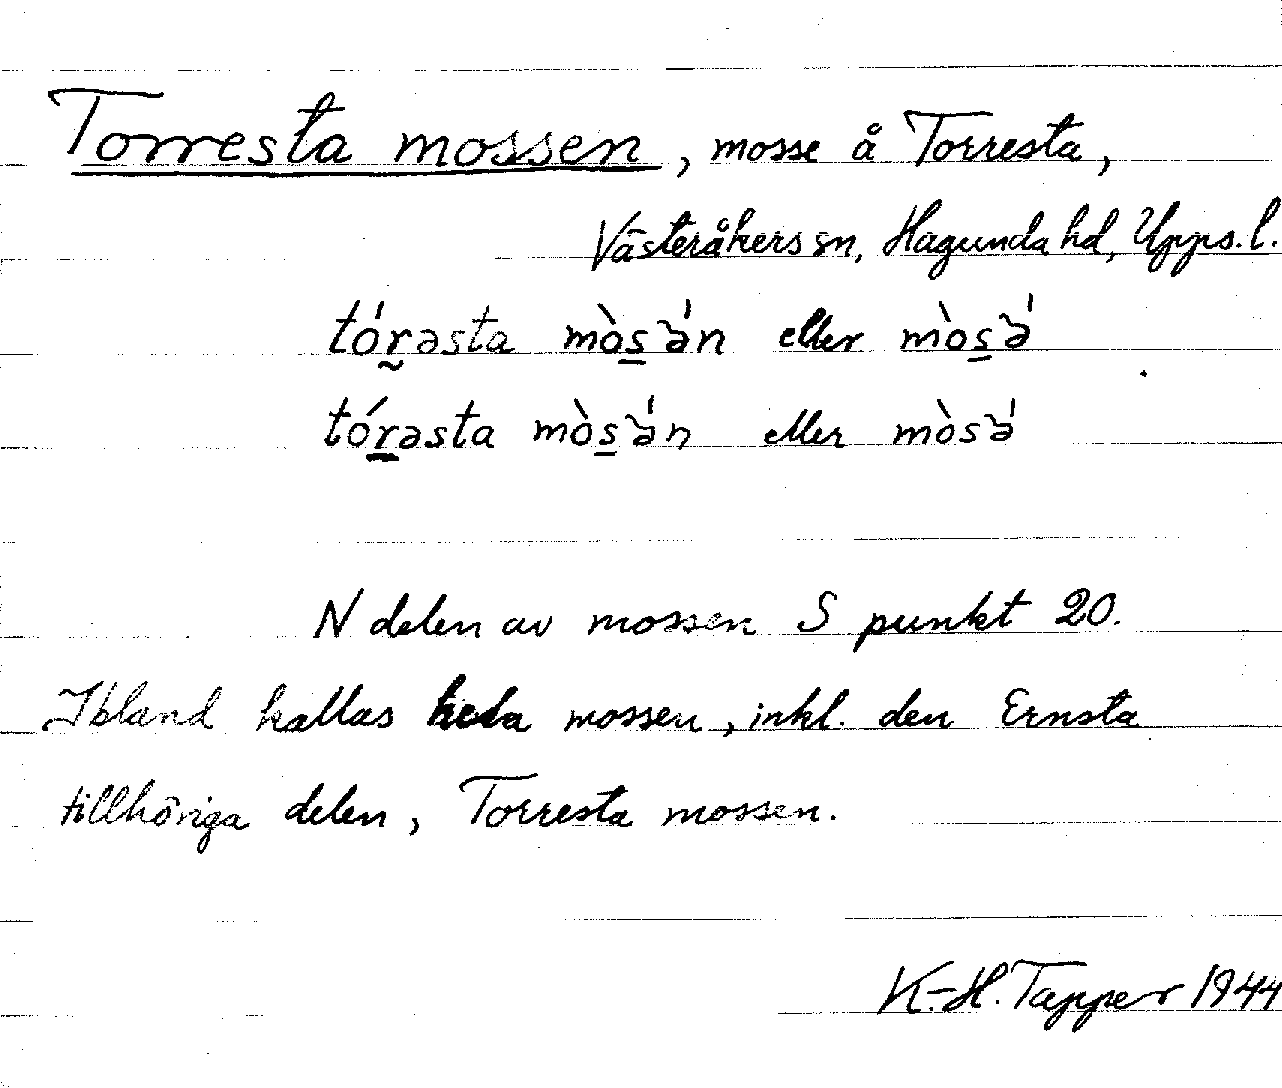 Torresta mossen, mosse å Torresta,
Västeråkers sn, Hagunda hd, Upps. l.
tór̰əsta mòs̲ə̀́n eller mòs̲ə̀́
tór̲əsta mòs̲ə̀́n eller mòsə̀́
N delen av mossen S punkt 20.
Ibland kallas hela mossen, inkl. den Ernsta
tillhöriga delen, Torresta mossen.
K.-H. Tapper 1944